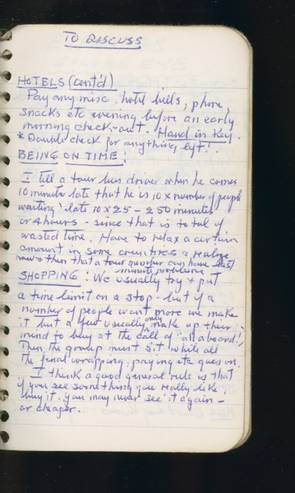 TO DISCUSS
HOTELS (cont'd)
Pay any misc. hotel bills, phone,
snacks etc evening before an early
morning check-out. Hand in key.
* Double check for anything left!
BEING ON TIME:
I tell a tour bus driver when he comes
10 minutes late that he is 10 x number of people
waiting late 10 x 25 - 250 minutes
or 4 hours - since that is total of
wasted time. Have to relax a certain
amount in some countries & realize
now & then that a tour member can have
minute problems!
SHOPPING: We usually try & put
a time limit on a stop - but if a
number of people want more we make
it but a few usually only make up their
mind to buy at the call of "all aboard!"
Then the group must sit while all
the final wrapping, paying etc goes on.
I think a good general rule is that
if you see something you really like
buy it. You may never see it again -
or cheaper.